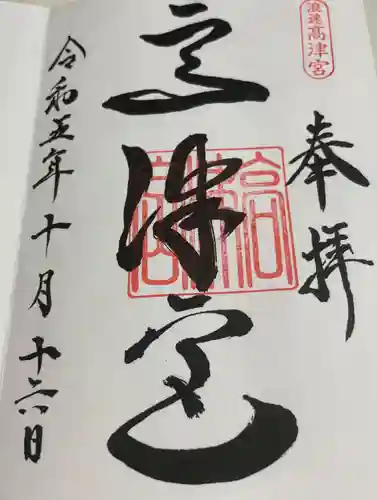 浪速高津宮
奉拝
高津宮
高津宮
令和五年十月十六日